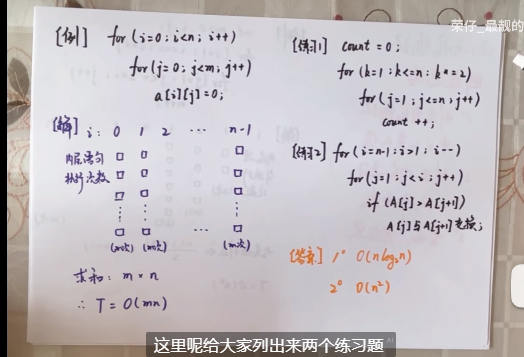 荣仔_最靓的
[例] for (i=0; i<n; i++)
for (j=0; j<m; j++)
a[i][j]=0;
[解] i: 0 1 2 ... n-1
内层语句
执行次数
(m次) (m次) (m次)
求和: m×n
∴ T=O(mn)
[练习1] count=0;
for (k=1; k<=n; k*=2)
for (j=1; j<=n; j++)
count ++;
[练习2] for (i=n-1; i>1; i--)
for (j=1; j<i; j++)
if (A[j]>A[j+1])
A[j]与A[j+1]交换;
[答案] 1° O(nlog₂n)
2° O(n²)
这里呢给大家列出来两个练习题